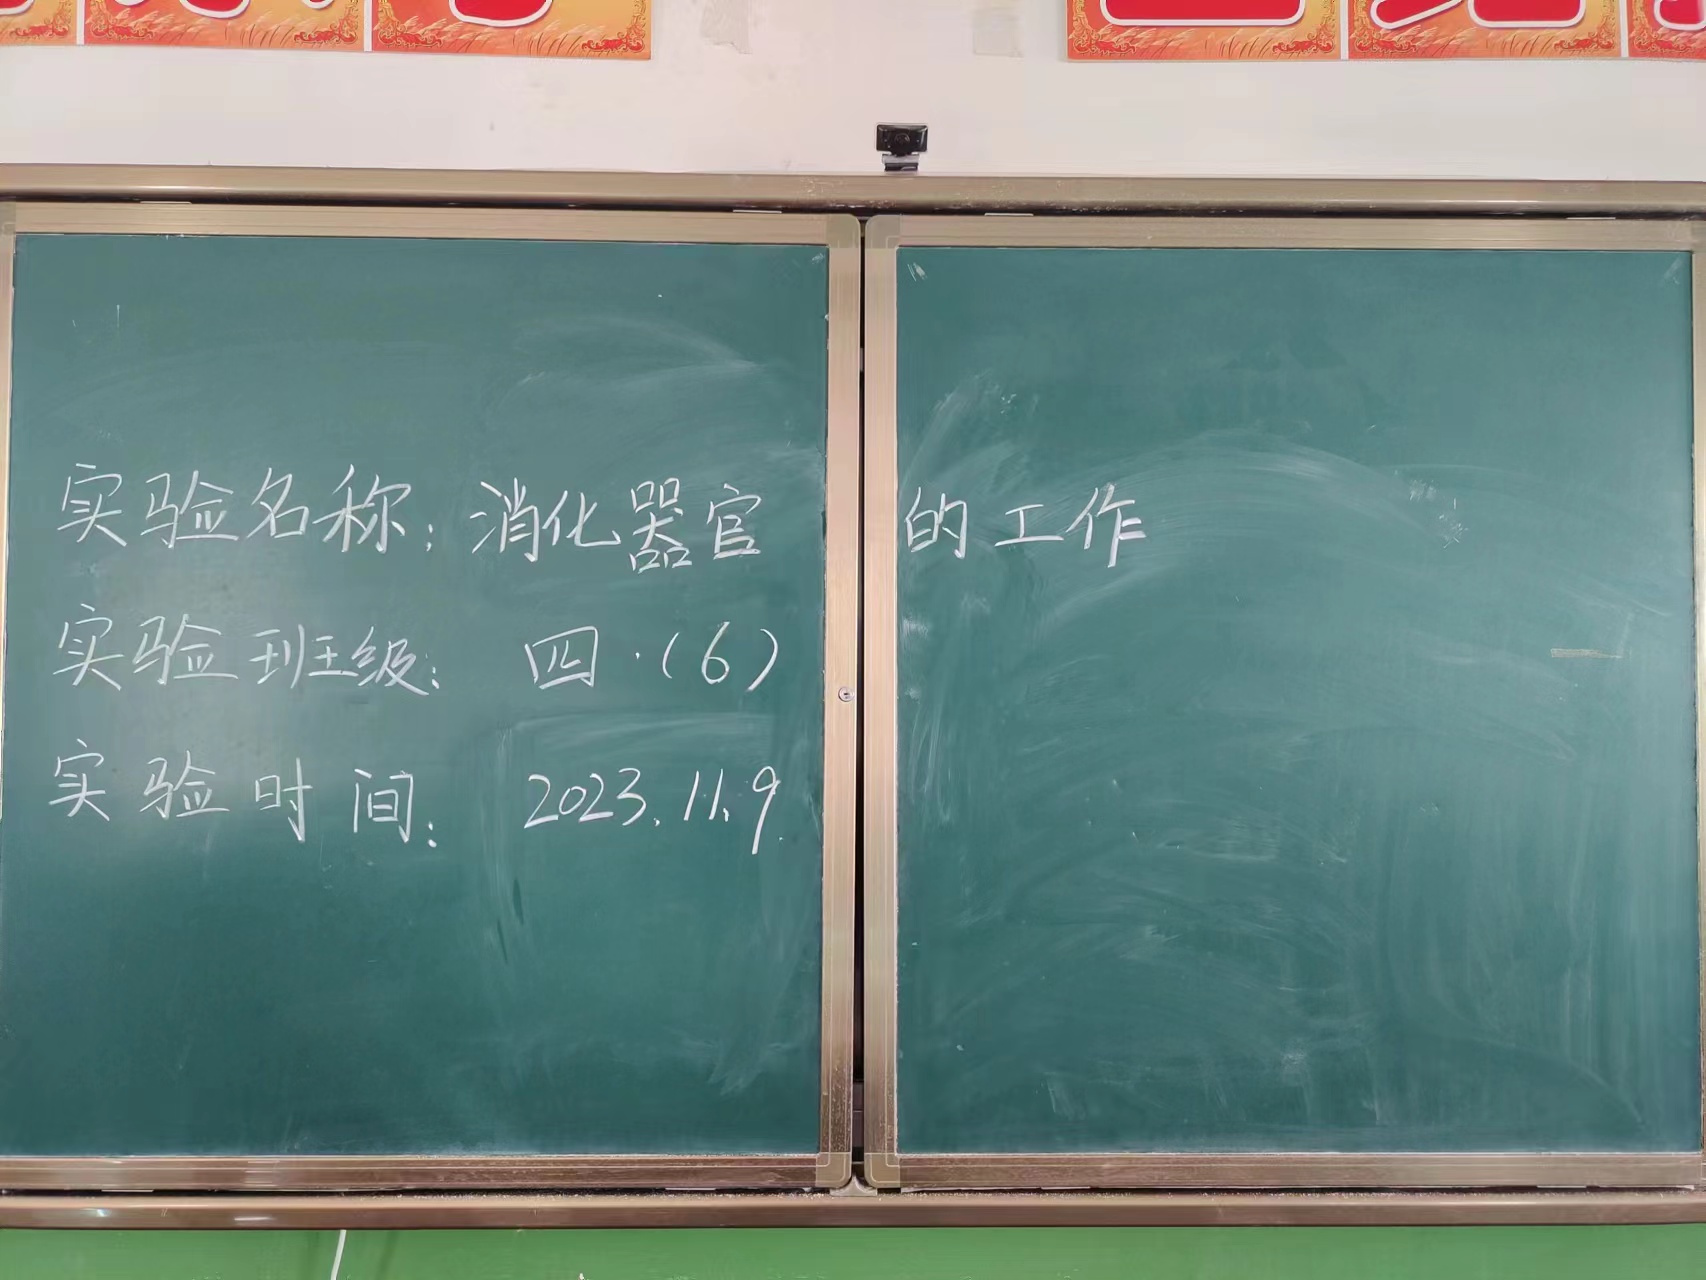 实验名称：消化器官的工作
实验班级：四·（6）
实验时间：2023.11.9.